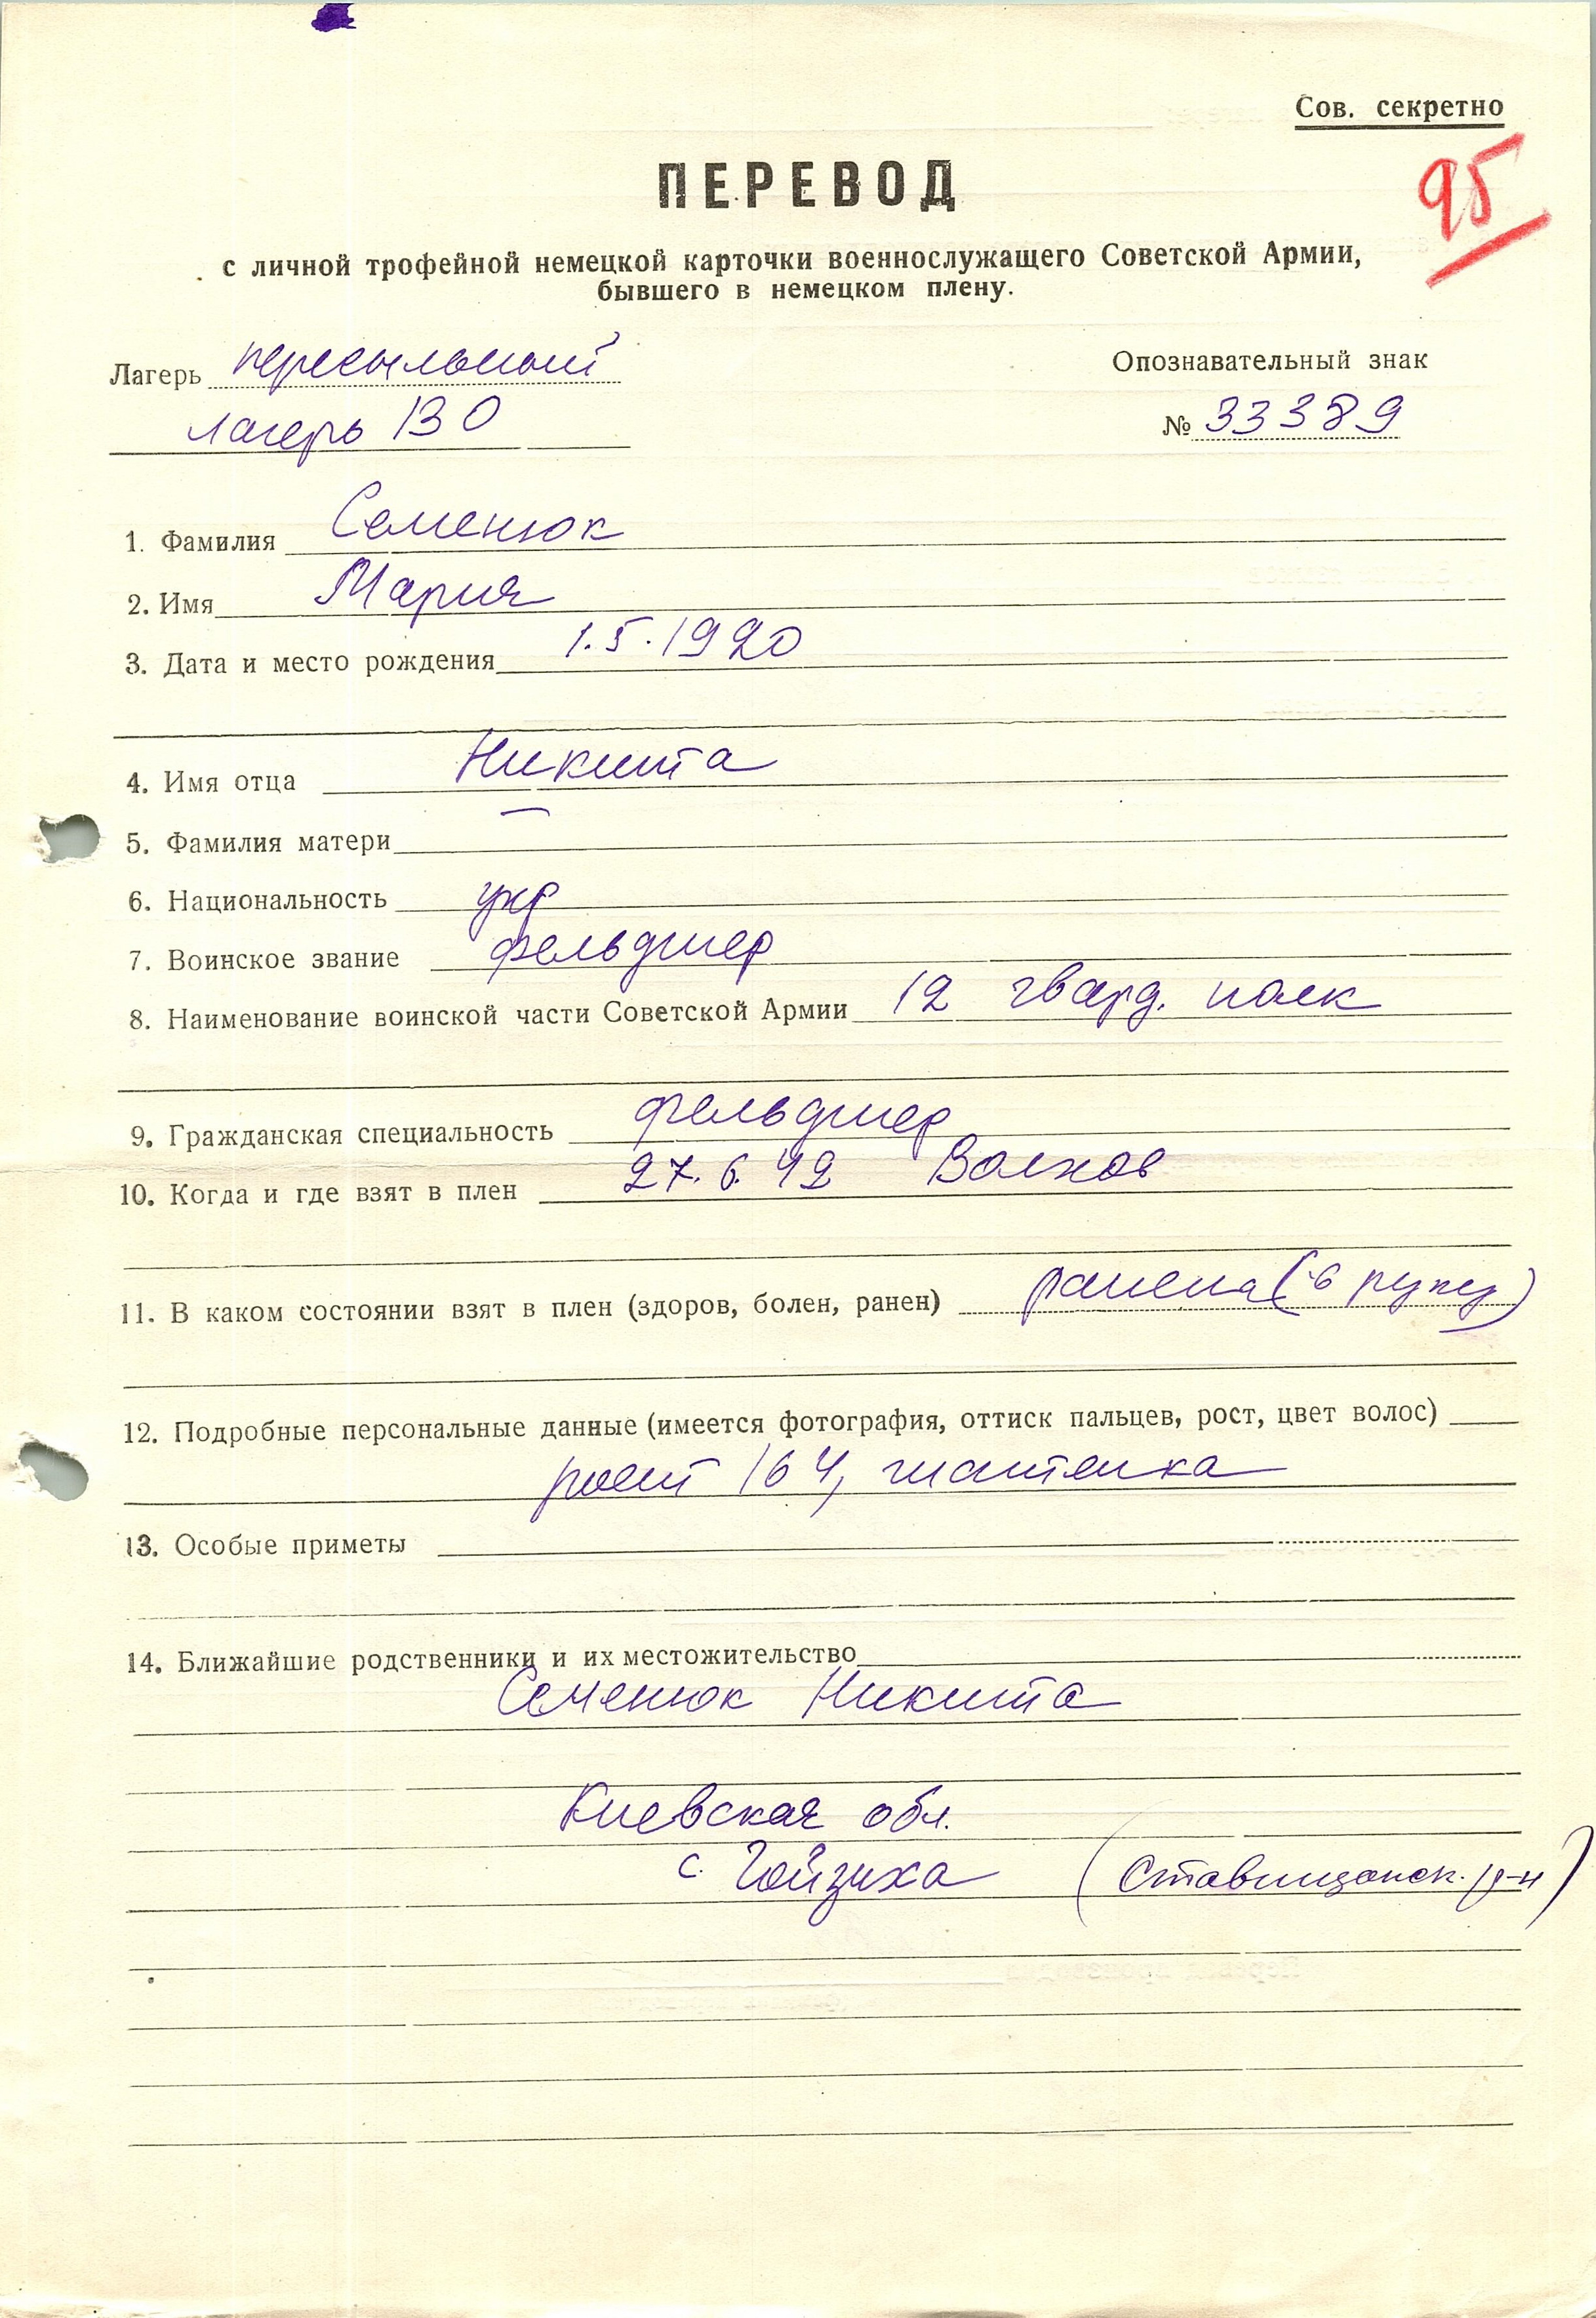 Сов. секретно
95
ПЕРЕВОД
с личной трофейной немецкой карточки военнослужащего Советской Армии,
бывшего в немецком плену.
Лагерь пересыльный
лагерь 130
Опознавательный знак
№ 33389
1. Фамилия Семенюк
2. Имя Мария
3. Дата и место рождения 1.5.1920
4. Имя отца Никита
5. Фамилия матери —
6. Национальность укр
7. Воинское звание фельдшер
8. Наименование воинской части Советской Армии 12 гвард. полк
9. Гражданская специальность фельдшер
10. Когда и где взят в плен 27.6.42 Волхов
11. В каком состоянии взят в плен (здоров, болен, ранен) ранена (в руку)
12. Подробные персональные данные (имеется фотография, оттиск пальцев, рост, цвет волос)
рост 164, шатенка
13. Особые приметы
14. Ближайшие родственники и их местожительство
Семенюк Никита
Киевская обл.
с. Гойзиха (Ставищанск. р-н)